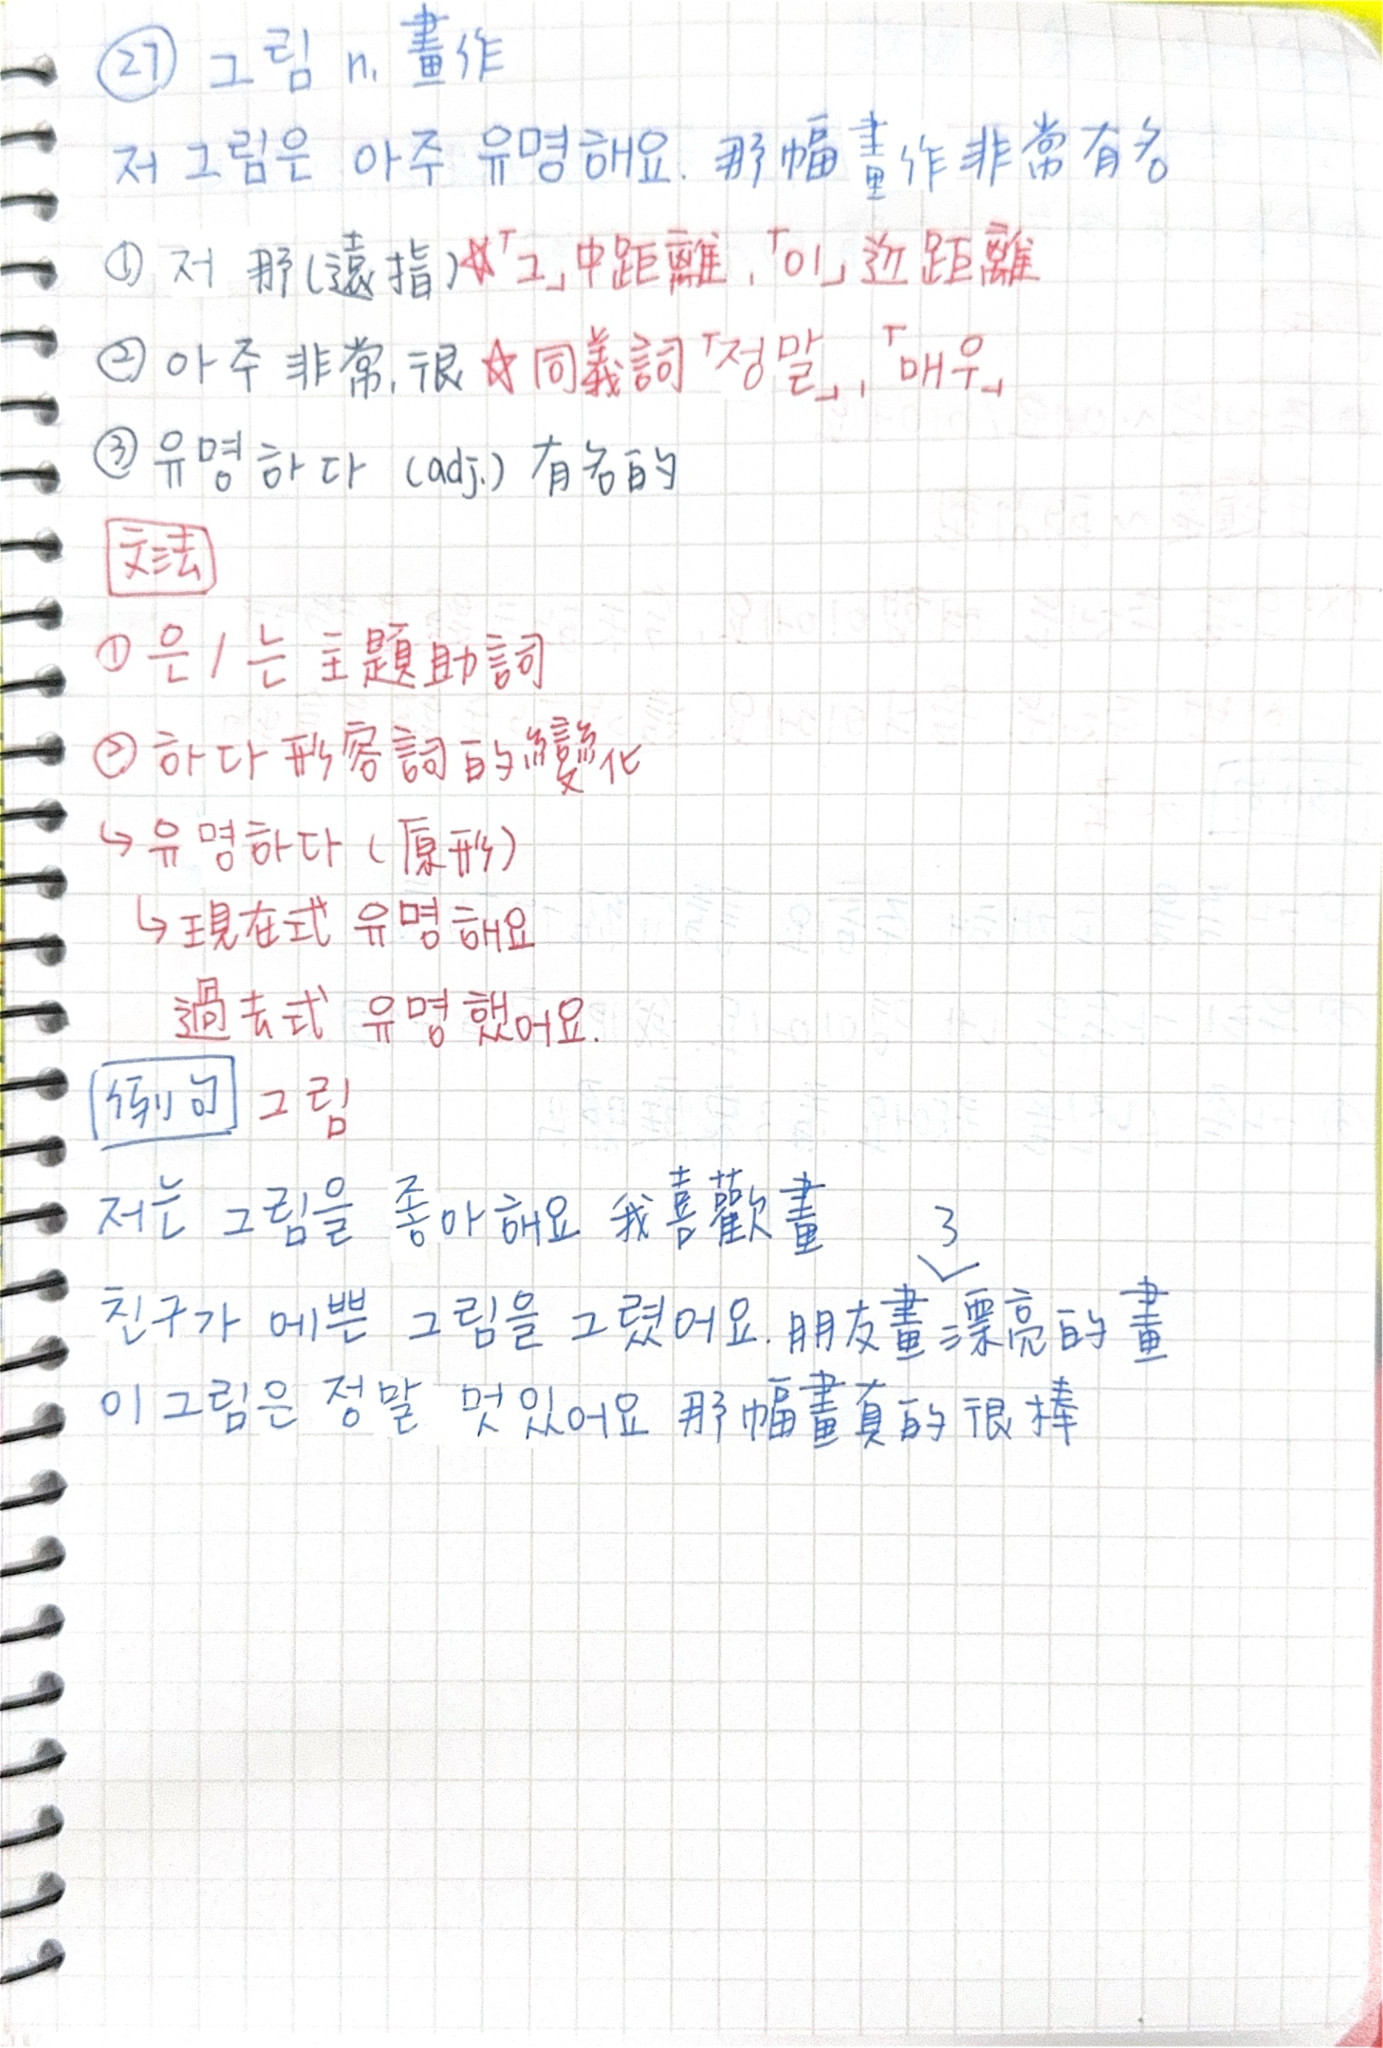 ㉗ 그림 n. 畫作
저 그림은 아주 유명해요. 那幅畫作非常有名
① 저 那(遠指)☆「그」中距離,「이」近距離
② 아주 非常,很 ☆同義詞「정말」,「매우」
③ 유명하다 (adj.) 有名的
文法
① 은/는 主題助詞
② 하다形容詞的變化
↳ 유명하다 (原形)
↳ 現在式 유명해요
過去式 유명했어요.
例句 그림
저는 그림을 좋아해요 我喜歡畫
3
친구가 예쁜 그림을 그렸어요. 朋友畫漂亮的畫
이 그림은 정말 멋있어요 那幅畫真的很棒